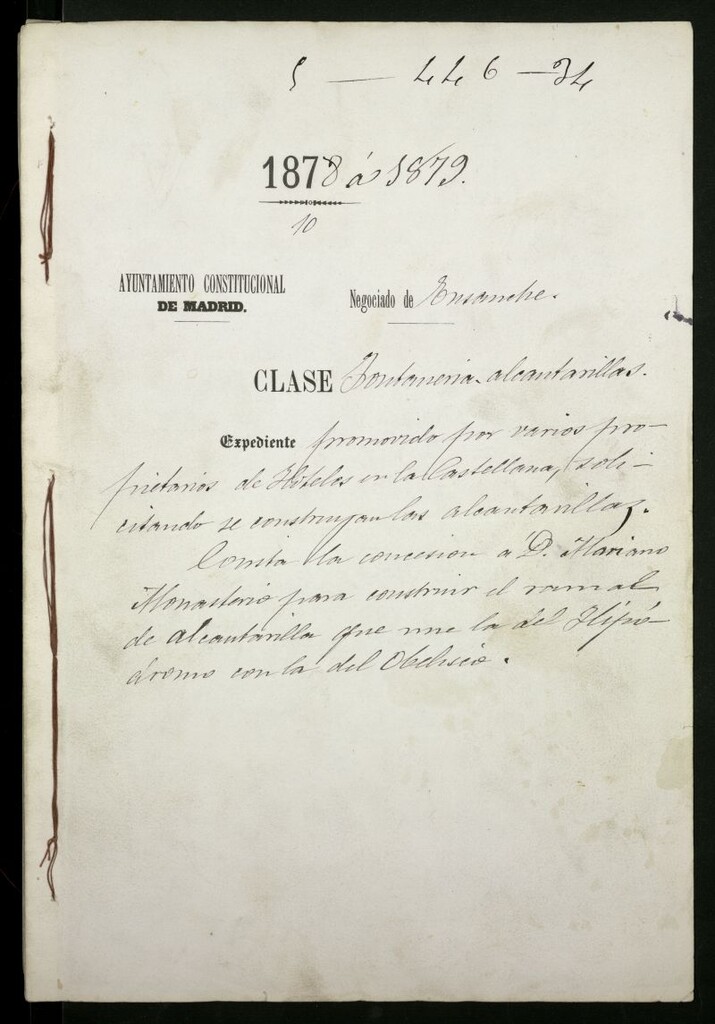 5 — 446 — 34
1878 á 1879.
10
AYUNTAMIENTO CONSTITUCIONAL
DE MADRID.
Negociado de Ensanche.
CLASE Fontaneria-alcantarillas.
Expediente promovido por varios pro-
pietarios de Hoteles en la Castellana, soli-
citando se construyan las alcantarillas.
Consta la concesion a D. Mariano
Monasterio para construir el ramal
de alcantarilla que une la del Hipó-
dromo con la del Obelisco.